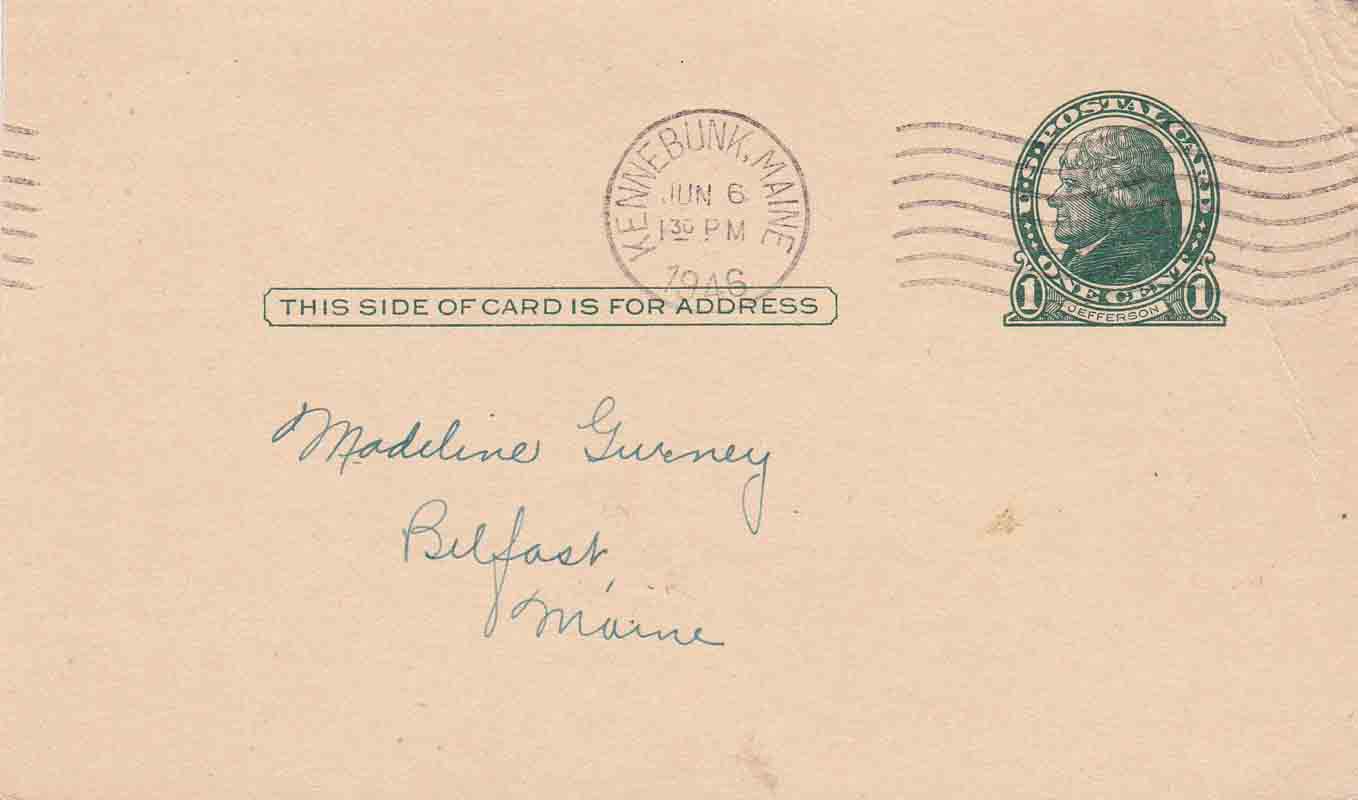 KENNEBUNK, MAINE
JUN 6
1 30 PM
1946
U.S. POSTAL CARD
ONE CENT
1 JEFFERSON 1
THIS SIDE OF CARD IS FOR ADDRESS
Madeline Gurney
Belfast,
Maine